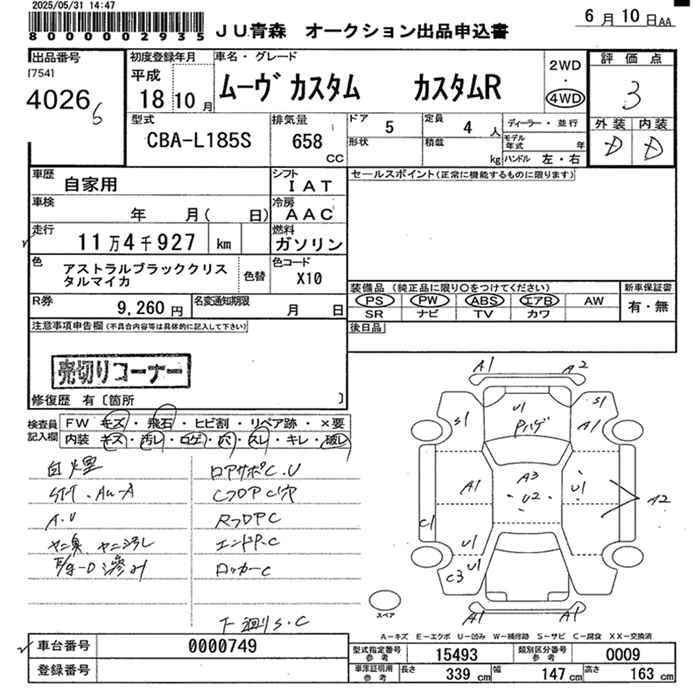 2025/05/31 14:47
8000002935
JU青森 オークション出品申込書
6月10日AA
出品番号
[754]
40265
初度登録年月
平成
18 10月
車名・グレード
ムーヴ カスタム カスタムR
2WD
・
4WD
評価点
3
外装 内装
D D
型式
CBA-L185S
排気量
658
CC
ドア 5
定員 4 人
形状
積載 kg
ディーラー・並行
モデル年式 年
ハンドル 左・右
車歴
自家用
シフト
IAT
セールスポイント(正常に機能するものに限ります)
車検
年 月( 日)
冷房
AAC
走行
11万4千927 km
燃料
ガソリン
色
アストラルブラッククリスタルマイカ
色替
色コード
X10
R券
9,260円
名変通知期限
月 日
装備品 (純正品に限り○をつけてください)
新車保証書
PS PW ABS エアB AW
有・無
SR ナビ TV カワ
後日品
注意事項申告欄(不具合内容等は具体的に記入して下さい)
売切りコーナー
修復歴 有〔箇所 〕
検査員記入欄
FW キズ・飛石・ヒビ割・リペア跡・×要
内装 キズ・汚レ・コゲ・穴・スレ・キレ・破レ
A.U
ヤニ臭
ロアサポC.U
CフロアP穴
RフロアPC
エンドP.C
ロッカーC
下廻りS.C
A1 A2
S1 U1 S1
A1
A3
A1 U2 U1
A2
C1
U1 U1
C3
A1 A1
スペア
A−キズ E−エクボ U−凹み W−補修跡 S−サビ C−腐食 XX−交換済
車台番号
0000749
登録番号
型式指定番号 参考
15493
類別区分番号 参考
0009
車庫証明用 参考
長さ 339 cm
幅 147 cm
高さ 163 cm